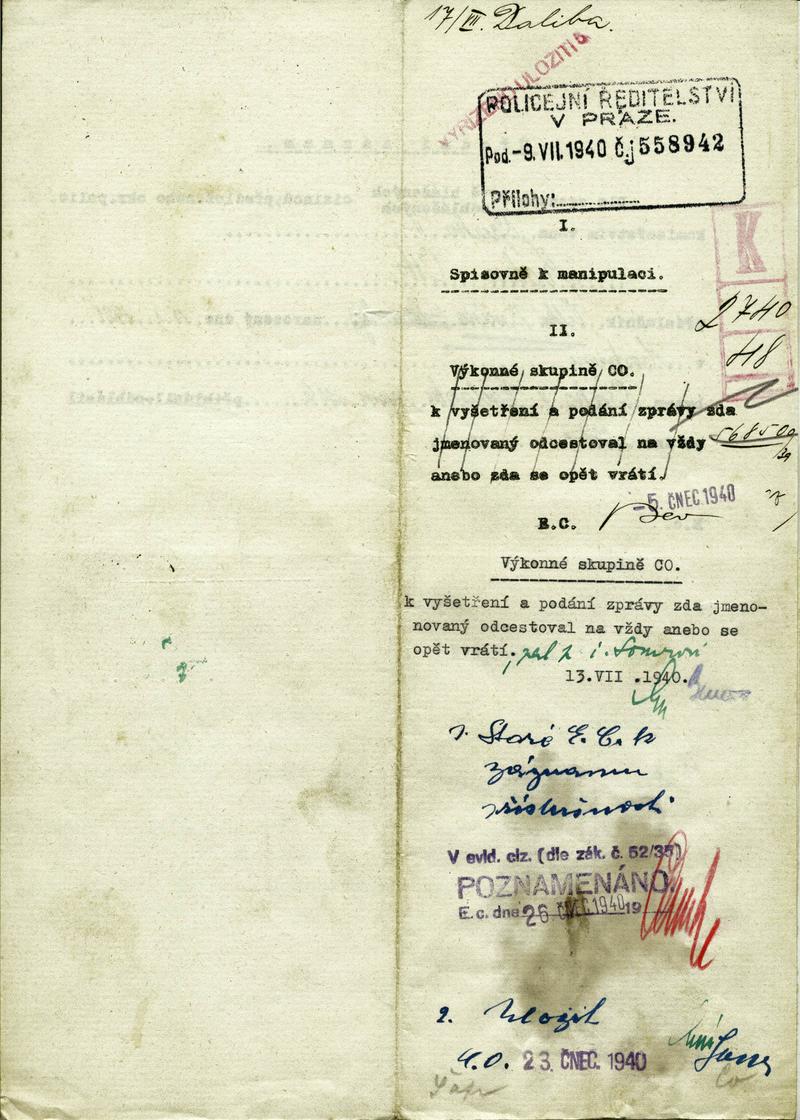 17/VII. Daliba.
VYŘÍZENO ULOŽITI
POLICEJNÍ ŘEDITELSTVÍ
V PRAZE.
Pod. -9.VII.1940 č.j 558942
Přílohy:
I.
Spisovně k manipulaci.
K
2740
II.
48
Výkonné skupině CO.
k vyšetření a podání zprávy zda
jmenovaný odcestoval na vždy
568500
39
anebo zda se opět vrátí.
-5. ČNEC.1940
E.C.
Výkonné skupině CO.
k vyšetření a podání zprávy zda jmeno-
novaný odcestoval na vždy anebo se
opět vrátí.
13.VII .1940.
1. Staré E.C. k
záznamu
příslušnosti
V evid. ciz. (dle zák. č. 52/35)
POZNAMENÁNO.
E. c. dne 26 ČNEC.1940 19
2. Uložit
23. ČNEC. 1940